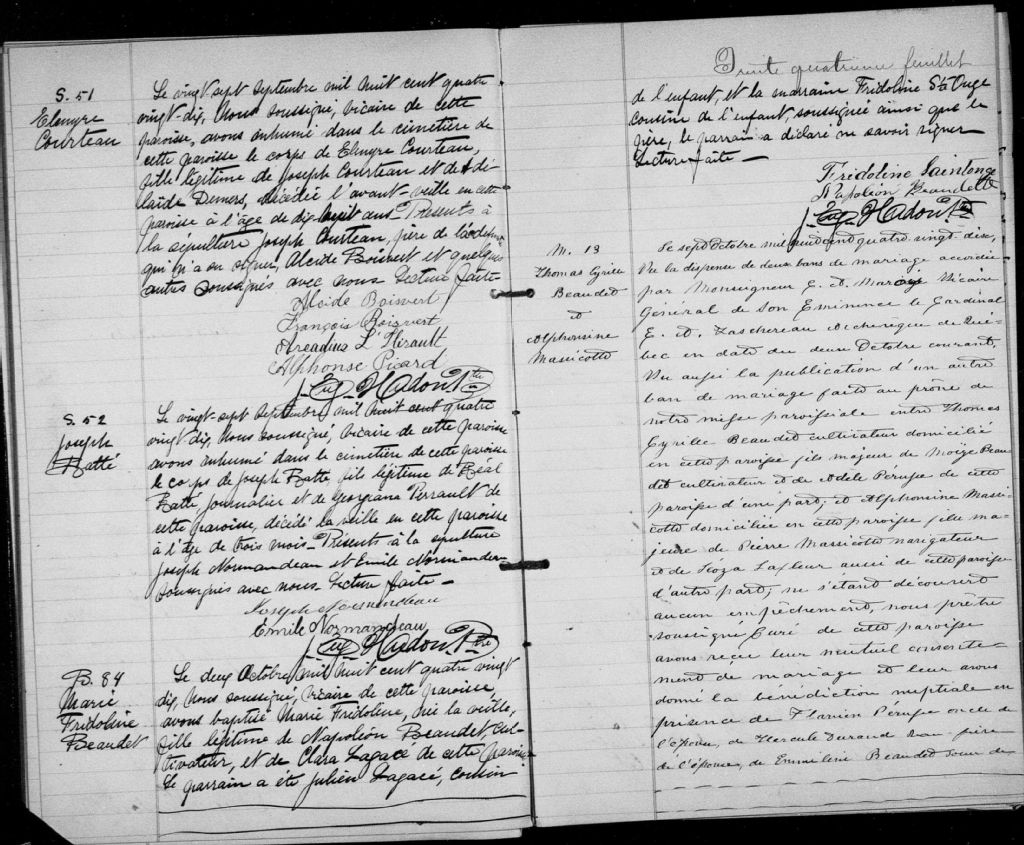 S. 51
Elmyre
Courteau
Le vingt-sept Septembre mil huit cent quatre
vingt-dix, Nous soussigné, vicaire de cette
paroisse, avons inhumé dans le cimetière de
cette paroisse le corps de Elmyre Courteau,
fille légitime de Joseph Courteau et de Adé-
laïde Demers, décédée l'avant-veille en cette
paroisse à l'âge de dix-huit ans. Présents à
la sépulture Joseph Courteau, père de la défunte
qui n'a su signer, Alcide Boisvert et quelques
autres soussignés avec nous. Lecture faite-
Alcide Boisvert
François Boisvert
Arcadius L'Hérault
Alphonse Picard
J. Eug. Nadon Ptre
S. 52
Joseph
Hatté
Le vingt-sept Septembre mil huit cent quatre
vingt dix, Nous soussigné, vicaire de cette paroisse
avons inhumé dans le cimetière de cette paroisse
le corps de Joseph Hatté, fils légitime de Réal
Hatté, journalier et de Georgiana Perrault de
cette paroisse, décédé la veille en cette paroisse
à l'âge de trois mois - Présents à la sépulture
Joseph Normandeau et Emile Normandeau
soussignés avec nous. Lecture faite -
Joseph Normandeau
Emile Normandeau
J. Eug. Nadon Ptre
B. 84
Marie
Fridoline
Beaudet
Le deux Octobre mil huit cent quatre vingt
dix, Nous soussigné, vicaire de cette paroisse,
avons baptisé Marie Fridoline, née la veille,
fille légitime de Napoléon Beaudet, cul-
tivateur, et de Clara Lagacé de cette paroisse
Le parrain a été Julien Lagacé, cousin
Trente quatrieme feuillet
de l'enfant, et la marraine Fridoline St-Onge
cousine de l'enfant, soussignée ainsi que le
père, le parrain a déclaré ne savoir signer
Lecture faite -
Fridoline Saintonge
Napoléon Beaudette
J. Eug. Nadon Ptre
M. 13
Thomas Cyrille
Beaudet
et
Alphonsine
Massicotte
Le sept Octobre mil huit cent quatre vingt dix,
Vu la dispense de deux bans de mariage accordée
par Monseigneur C. A. Marois Vicaire
Général de Son Eminence le Cardinal
E. A. Taschereau Archevêque de Qué-
bec en date du deux Octobre courant,
Vu aussi la publication d'un autre
ban de mariage faite au prône de
notre messe paroissiale entre Thomas
Cyrille Beaudet cultivateur domicilié
en cette paroisse fils majeur de Moïze Beau
det cultivateur et de Adele Péruse de cette
paroisse d'une part; et Alphonsine Massi
cotte domiciliée en cette paroisse fille ma-
jeure de Pierre Massicotte navigateur
et de Roza Lafleur aussi de cette paroisse
d'autre part; ne s'étant découvert
aucun empêchement, nous prêtre
soussigné Curé de cette paroisse
avons reçu leur mutuel consente-
ment de mariage et leur avons
donné la bénédiction nuptiale en
présence de Flavien Péruse oncle de
l'époux, de Hercule Durand
de l'épouse, de Emmeline Beaudet soeur de